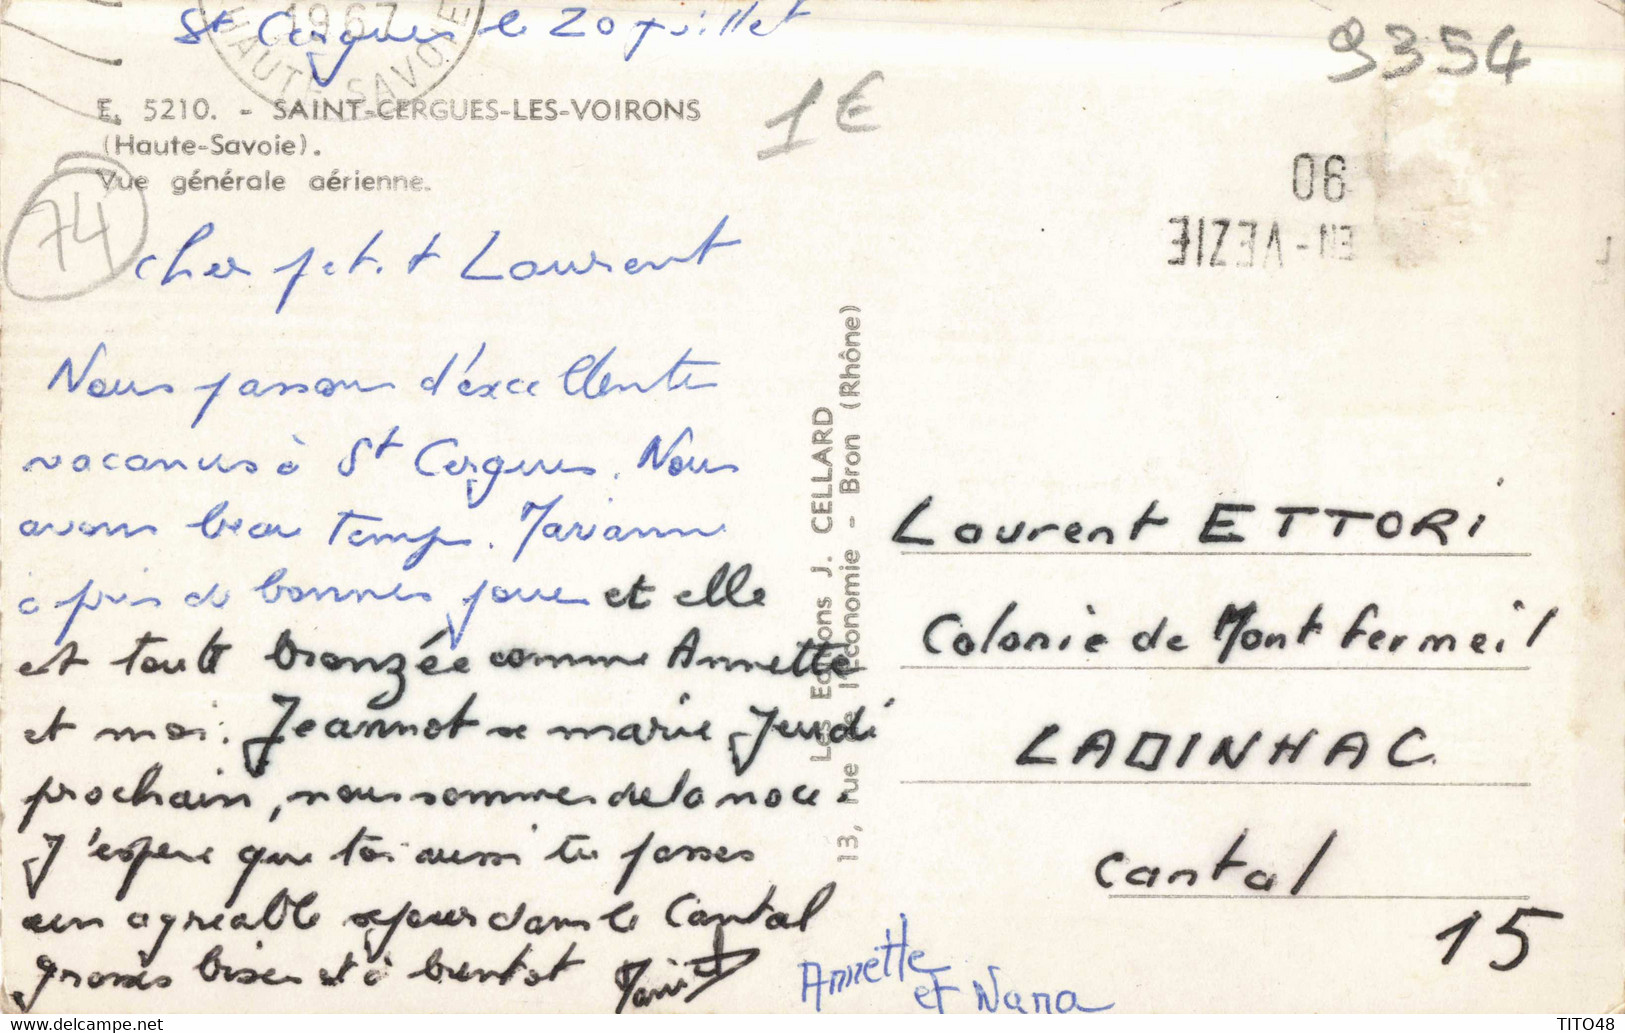 1967
HAUTE-SAVOIE
St Cergues le 20 juillet
9354
1€
E. 5210. - SAINT-CERGUES-LES-VOIRONS
(Haute-Savoie).
Vue générale aérienne.
74
06
EN-VEZIE
Cher petit Laurent
Nous passons d'excellentes
vacances à St Cergues. Nous
avons beau temps. Marianne
a pris de bonnes joues et elle
est toute bronzée comme Annette
et moi. Jeannot se marie Jeudi
prochain, nous sommes de la noce.
J'espère que toi aussi tu passes
un agréable séjour dans le Cantal
grosses bises et à bientot
Annette
et Nana
Les Editions J. CELLARD
13, rue de l'Economie - Bron (Rhône)
Laurent ETTORI
Colonie de Montfermeil
LADINHAC
Cantal
15
TITO48